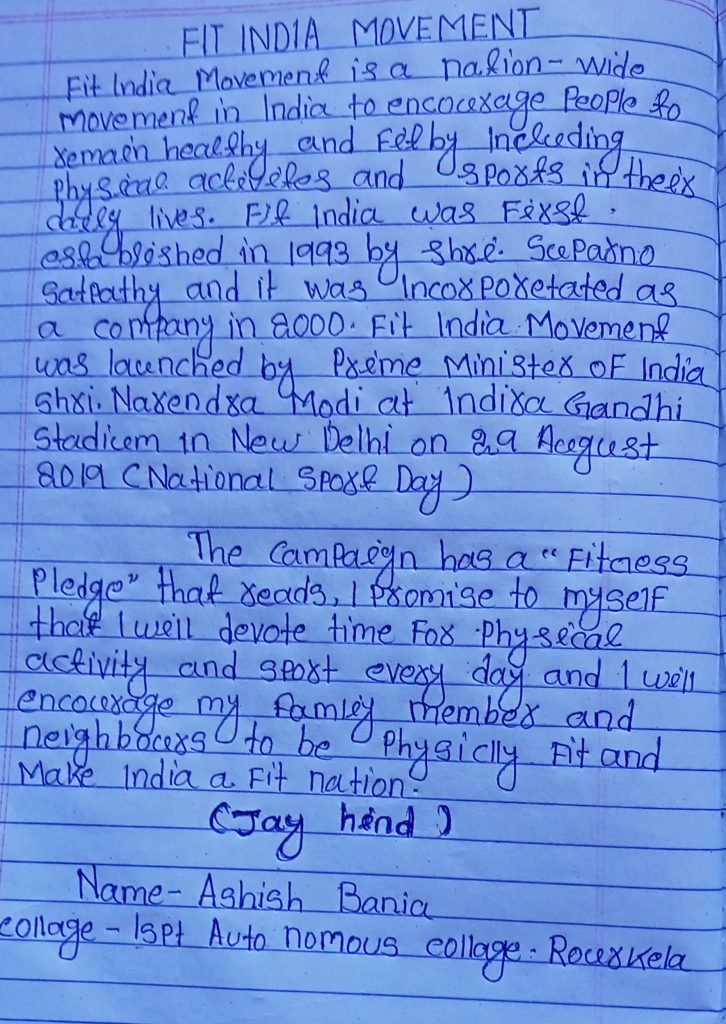 FIT INDIA MOVEMENT
Fit India Movement is a nation-wide
movement in India to encourage People to
remain healthy and Fit by Including
physical activites and sports in their
daily lives. Fit India was First
established in 1993 by Shri. Suparno
Satpathy and it was Incorporetated as
a company in 2000. Fit India Movement
was launched by Prime Minister of India
Shri. Narendra Modi at Indira Gandhi
Stadium in New Delhi on 29 August
2019 (National Sport Day)
The Campaign has a "Fitness
Pledge" that reads, I Promise to myself
that I will devote time For Physical
activity and sport every day and I will
encourage my Famliy member and
neighbours to be Physiclly Fit and
Make India a Fit nation.
(Jay hind)
Name- Ashish Bania
collage - Ispt Auto nomous collage. Rourkela